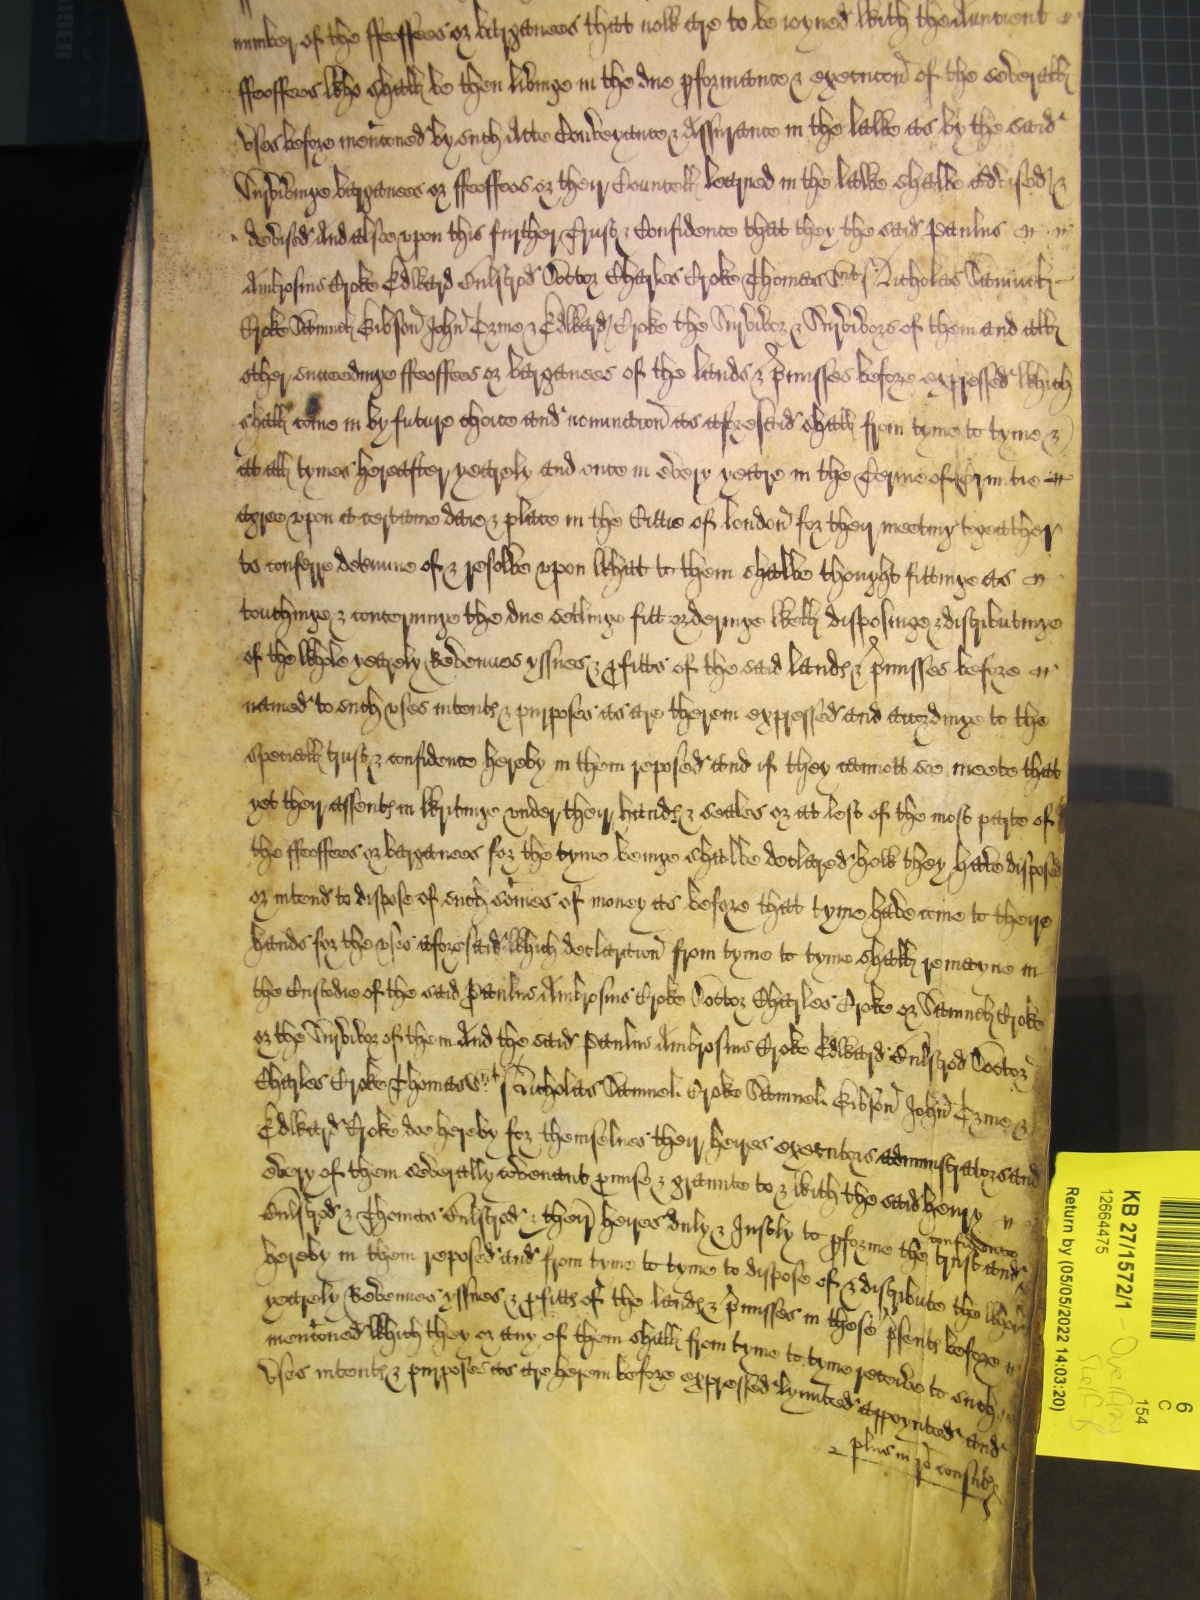 number of the ffeoffees or bargainees that now are to be ioyned with the Auncient
ffeoffees who shall be then livinge in the due pformance & execucon of the severall
Uses before mencioned by such Acte Conveyance & Assurance in the lawe as by the said
Survivinge bargainees or ffeoffees or their Councell learned in the lawe shalbe advised &
devised And alsoe vpon this further Trust & Confidence that they the said Paulus
Ambrosius Croke Edward Bulstrod Doctor Charles Croke Thomas Nicholas Samuell
Croke Samuell Gibson John Edward Croke the Survivor & Survivors of them and all
other succeedinge ffeoffees or bargainees of the lands & pmisses before expressed which
shall come in by future choice and nominacon as aforesaid shall from tyme to tyme &
at all tymes hereafter yearely and once in every yeare in the Terme of
agree vpon a certaine daie & place in the Cittie of london for their meeting togeather
to conferre determine of & resolve vpon what to them shalbe thought fittinge as
touchinge & concerninge the due setlinge fitt orderinge well disposinge & distributinge
of the whole yearely Revenues yssues & pfitts of the said lands & pmisses before
named to such vses intents & purposes as are therein expressed and accordinge to the
speciall trust & confidence hereby in them reposed and if they cannott soe meete that
yet their assents in writinge vnder their hands & seales or at lest of the most parte of
the ffeoffees or bargainees for the tyme beinge shalbe declared how they have disposed
or intend to dispose of such somes of money as before that tyme have come to theire
hands for the vses aforesaid which declaracon from tyme to tyme shall remayne in
the Custodie of the said Paulus Ambrosius Croke Doctor Charles Croke or Samuell Croke
or the Survivor of them And the said Paulus Ambrosius Croke Edward Bulstrod Doctor
Charles Croke Thomas Nicholas Samuell Croke Samuell Gibson John &
Edward Croke doe hereby for themselues their heires executors administrators and
every of them severally covenant pmise & graunte to & with the said henry
Bulstrod & Thomas Bulstrod & their heires duly & Justly to pforme the trust and
confidence
hereby in them reposed and from tyme to tyme to dispose of & distribute the whole
yearely Revenues yssues & pfitts of the lands & pmisses in these psents before
mencioned which they or any of them shall from tyme to tyme receive to such
Uses intents & purposes as are herein before expressed lymited appoynted and
KB 27/1572/1
12664475
Return by (05/05/2022 14:03:20)
154
C
6